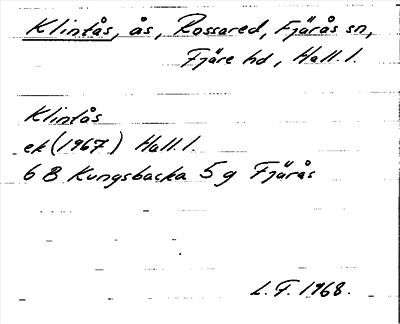 Klintås, ås, Rossared, Fjärås sn,
Fjäre hd, Hall. l.
Klintås
ek (1967) Hall. l.
6 B Kungsbacka 5 g Fjärås
L. F. 1968.